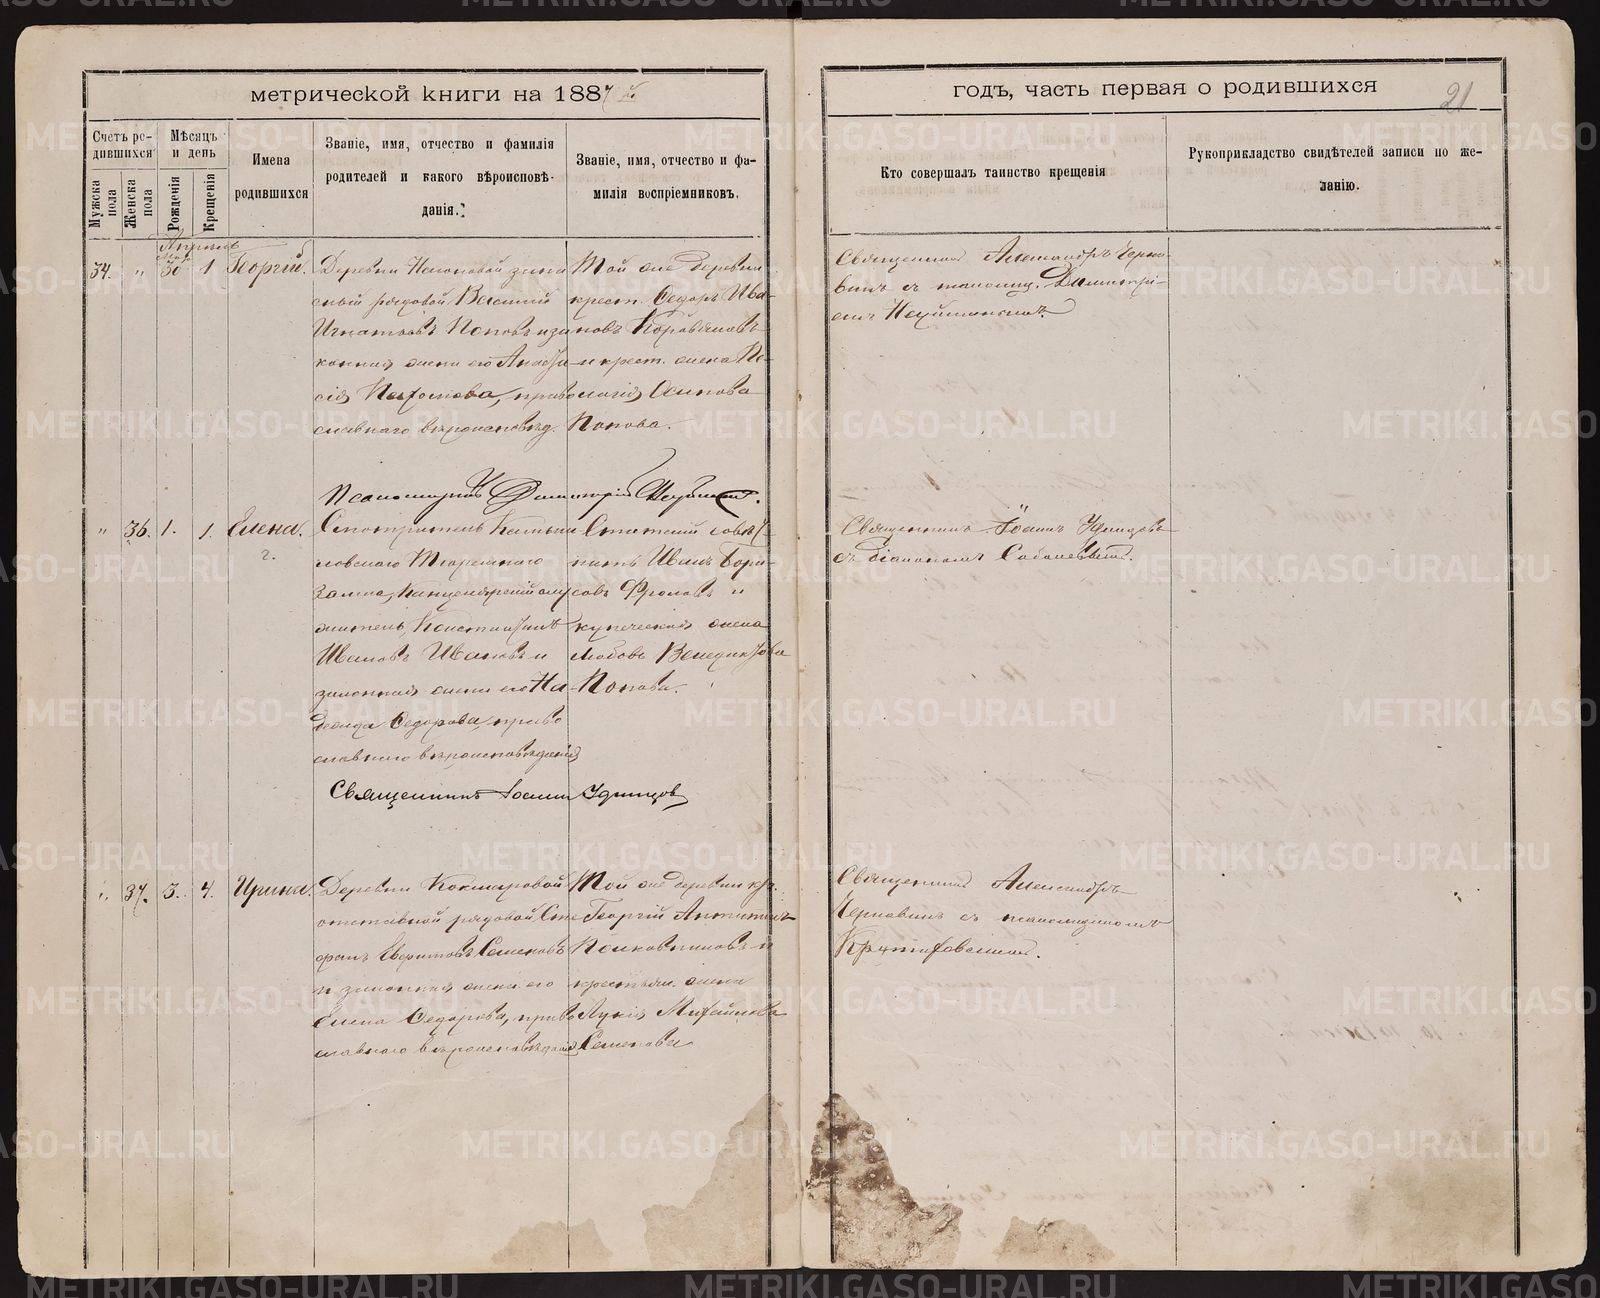 метрической книги на 1887
годъ, часть первая о родившихся
21
Счетъ ро-
дившихся
Мѣсяцъ
и день
Мужска
пола
Женска
пола
Рожденія
Крещенія
Имена
родившихся
Званіе, имя, отчество и фамилія
родителей и какого вѣроисповѣ-
данія.
Званіе, имя, отчество и фа-
милія воспріемниковъ.
Кто совершалъ таинство крещенія
Рукоприкладство свидѣтелей записи по же-
ланію.
Апрель
Май
34. " 30 1 Георгій.
Деревни запа
сный рядовой Василий
Игнатьевъ Поповъ и за
конная жена его Анаста
сія православнаго вѣроисповѣд.
Той же деревни
крест. Ѳедоръ Ива-
новъ
и крест. жена Пе-
лагія Осипова
Попова.
Священникъ Александръ Черна-
винъ с псаломщ. Димитрі-
емъ
Псаломщикъ Димитрій
" 36. 1. 1. Елена.
2.
Смотритель Камыш
ловскаго Тюремнаго
замка, Канцелярскій слу
житель, Константинъ
Ивановъ Ивановъ и
законная жена его На
дежда Ѳедорова, право
славнаго вѣроисповѣданія
Статский совѣт
никъ Иванъ Бори-
совъ Фроловъ и
купеческая жена
Любовь Венедиктова
Попова.
Священникъ Іоаннъ Удинцовъ
съ діакономъ
Священникъ Іоаннъ Удинцов
" 37. 3. 4. Ирина.
Деревни Кокшаровой
отставной рядовой Сте
фанъ Семеновъ
и законная жена его
Елена Ѳедорова, право
славнаго вѣроисповѣданія
Той же деревни кр.
Георгій
Полковниковъ и
крестьян. жена
Лукія Михайлова
Семенова
Священникъ Александръ
Чернавинъ с псаломщикомъ
METRIKI.GASO-URAL.RU